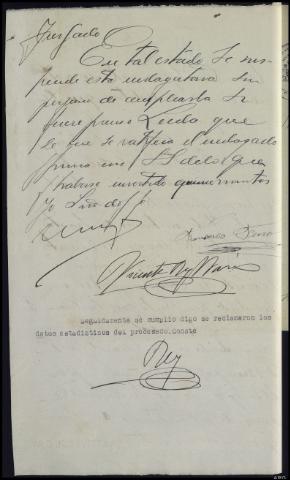 Juzgado
En tal estado se sus-
pende esta indagatoria sin
perjuicio de ampliarla si
fuere preciso Leida que
le que se ratifica el indagado
firma con S.S de lo que
haberse invertido quince minutos
Yo Srio doy fe
Francisco
Vicente Rey
seguidamente se cumplio digo se reclamaron los
datos estadisticos del procesado.Conste
Rey